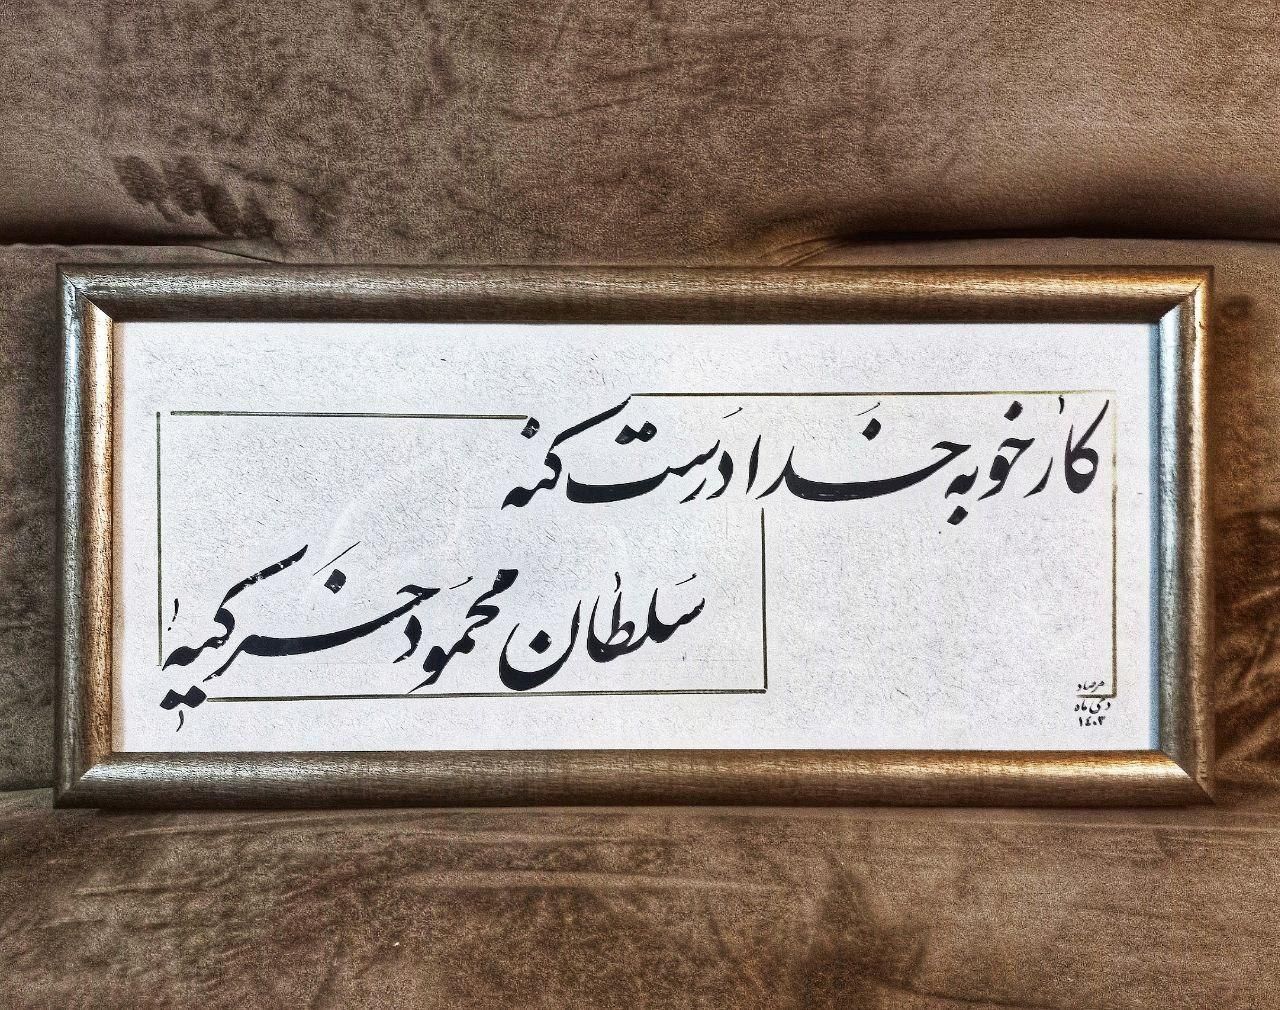 کار خوبه خدا درست کنه
سلطان محمود خر کیه
مرصاد
دی ماه
۱۴۰۳